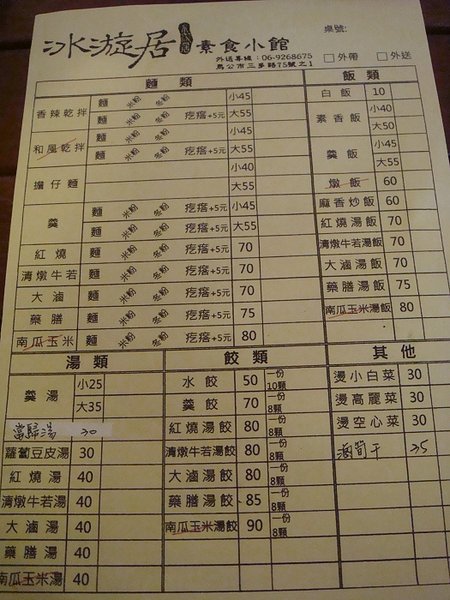 冰漩居 素食小館
桌號:
外送專線：06-9268675
馬公市三多路75號之1
□外帶 □外送
麵類
香辣乾拌 麵 米粉 冬粉 疙瘩+5元 小45
麵 米粉 冬粉 疙瘩+5元 大55
和風乾拌 麵 米粉 冬粉 疙瘩+5元 小45
麵 米粉 冬粉 疙瘩+5元 大55
擔仔麵 小40
大55
羹 麵 米粉 冬粉 疙瘩+5元 小45
麵 米粉 冬粉 疙瘩+5元 大55
紅燒 麵 米粉 冬粉 疙瘩+5元 70
清燉牛若 麵 米粉 冬粉 疙瘩+5元 70
大滷 麵 米粉 冬粉 疙瘩+5元 70
藥膳 麵 米粉 冬粉 疙瘩+5元 75
南瓜玉米 麵 米粉 冬粉 疙瘩+5元 80
飯類
白飯 10
素香飯 小40
大50
羹飯 小45
大55
燉飯 60
麻香炒飯 60
紅燒湯飯 70
清燉牛若湯飯 70
大滷湯飯 70
藥膳湯飯 75
南瓜玉米湯飯 80
湯類
羹湯 小25
大35
當歸湯 30
蘿蔔豆皮湯 30
紅燒湯 40
清燉牛若湯 40
大滷湯 40
藥膳湯 40
南瓜玉米湯 40
餃類
水餃 50 一份10顆
羹餃 70 一份8顆
紅燒湯餃 80 一份8顆
清燉牛若湯餃 80 一份8顆
大滷湯餃 80 一份8顆
藥膳湯餃 85 一份8顆
南瓜玉米湯餃 90 一份8顆
其他
燙小白菜 30
燙高麗菜 30
燙空心菜 30
滷筍干 35